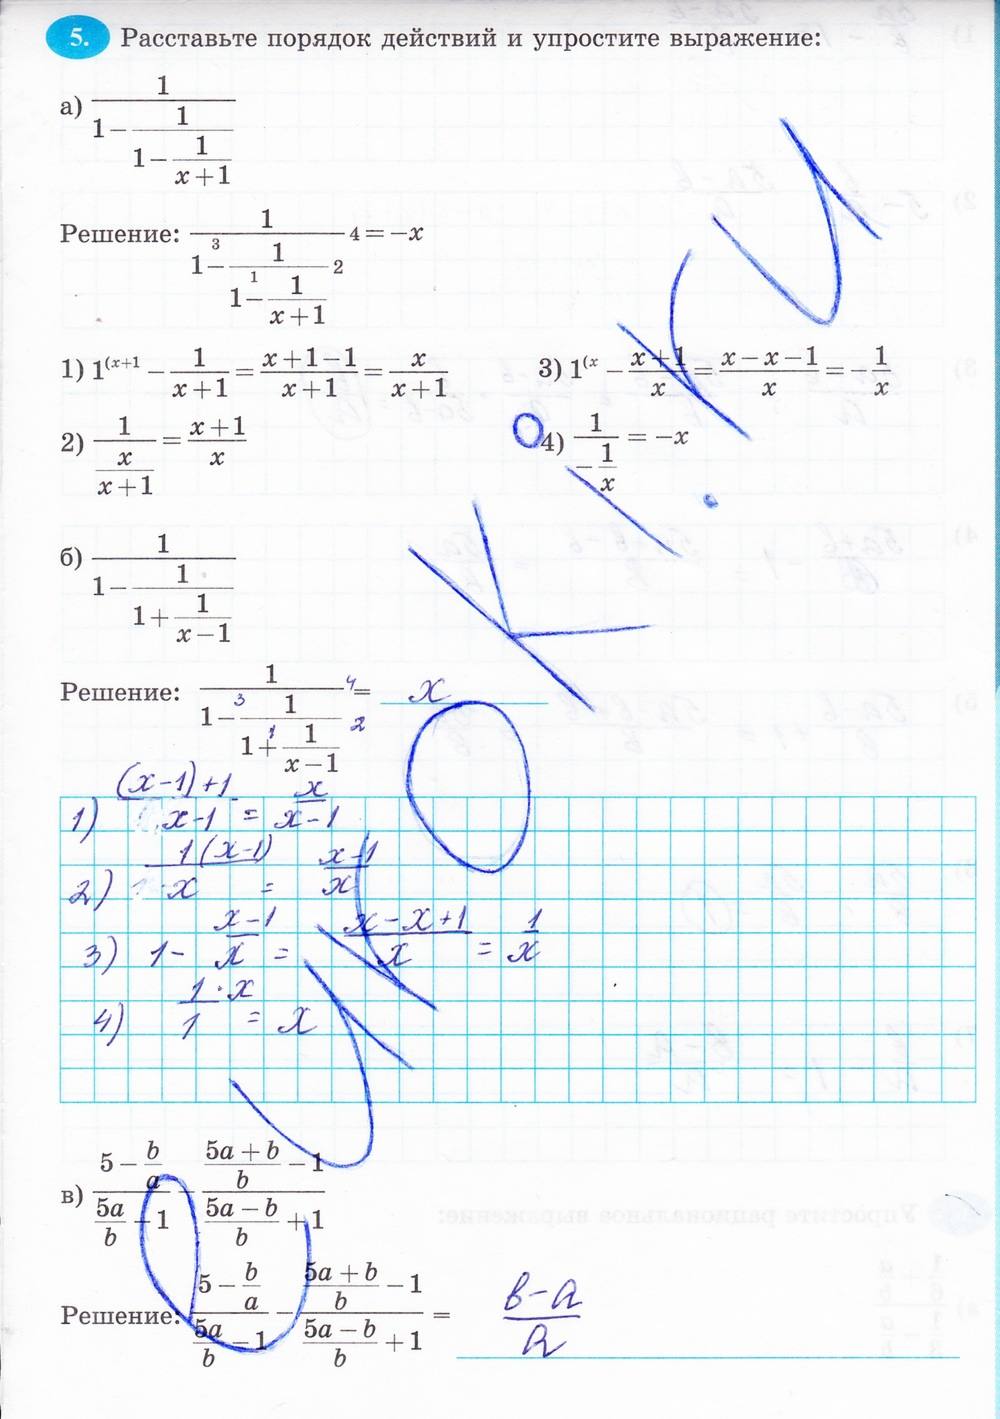 5. Расставьте порядок действий и упростите выражение:
а) 1/(1 − 1/(1 − 1/(x+1)))
Решение: 1/(1 −³ 1/(1 −¹ 1/(x+1)) 2) 4 = −x
1) 1^(x+1 − 1/(x+1) = (x+1−1)/(x+1) = x/(x+1)
3) 1^(x − (x+1)/x = (x−x−1)/x = −1/x
2) 1/(x/(x+1)) = (x+1)/x
4) 1/(−1/x) = −x
б) 1/(1 − 1/(1 + 1/(x−1)))
Решение: 1/(1 −³ 1/(1 +¹ 1/(x−1)) 2) 4 = x
1) ((x−1)+1)/(x−1) = x/(x−1)
2) 1(x−1)/x = (x−1)/x
3) 1 − (x−1)/x = (x−x+1)/x = 1/x
4) (1·x)/1 = x
в) (5 − b/a)/(5a/b + 1) − ((5a+b)/b − 1)/((5a−b)/b + 1)
Решение: (5 − b/a)/(5a/b − 1) − ((5a+b)/b − 1)/((5a−b)/b + 1) = (b−a)/a